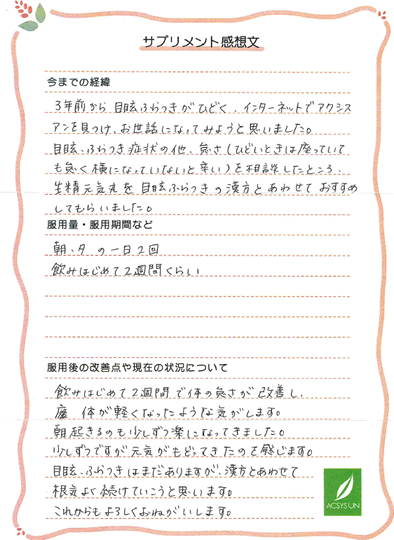 サプリメント感想文
今までの経緯
3年前から目眩ふらつきがひどく、インターネットでアクシス
アンを見つけ、お世話になってみようと思いました。
目眩、ふらつき症状の他、怠さ(ひどいときは座っていて
も怠く横になっていないと辛い)を相談したところ、
生精元気丸を目眩ふらつきの漢方とあわせておすすめ
してもらいました。
服用量・服用期間など
朝、夕の一日2回
飲みはじめて2週間くらい
服用後の改善点や現在の状況について
飲みはじめて2週間で体の怠さが改善し、
体が軽くなったような気がします。
朝起きるのも少しずつ楽になってきました。
少しずつですが元気がもどってきたのを感じます。
目眩、ふらつきはまだありますが、漢方とあわせて
根気よく続けていこうと思います。
これからもよろしくおねがいします。
ACSYS UN